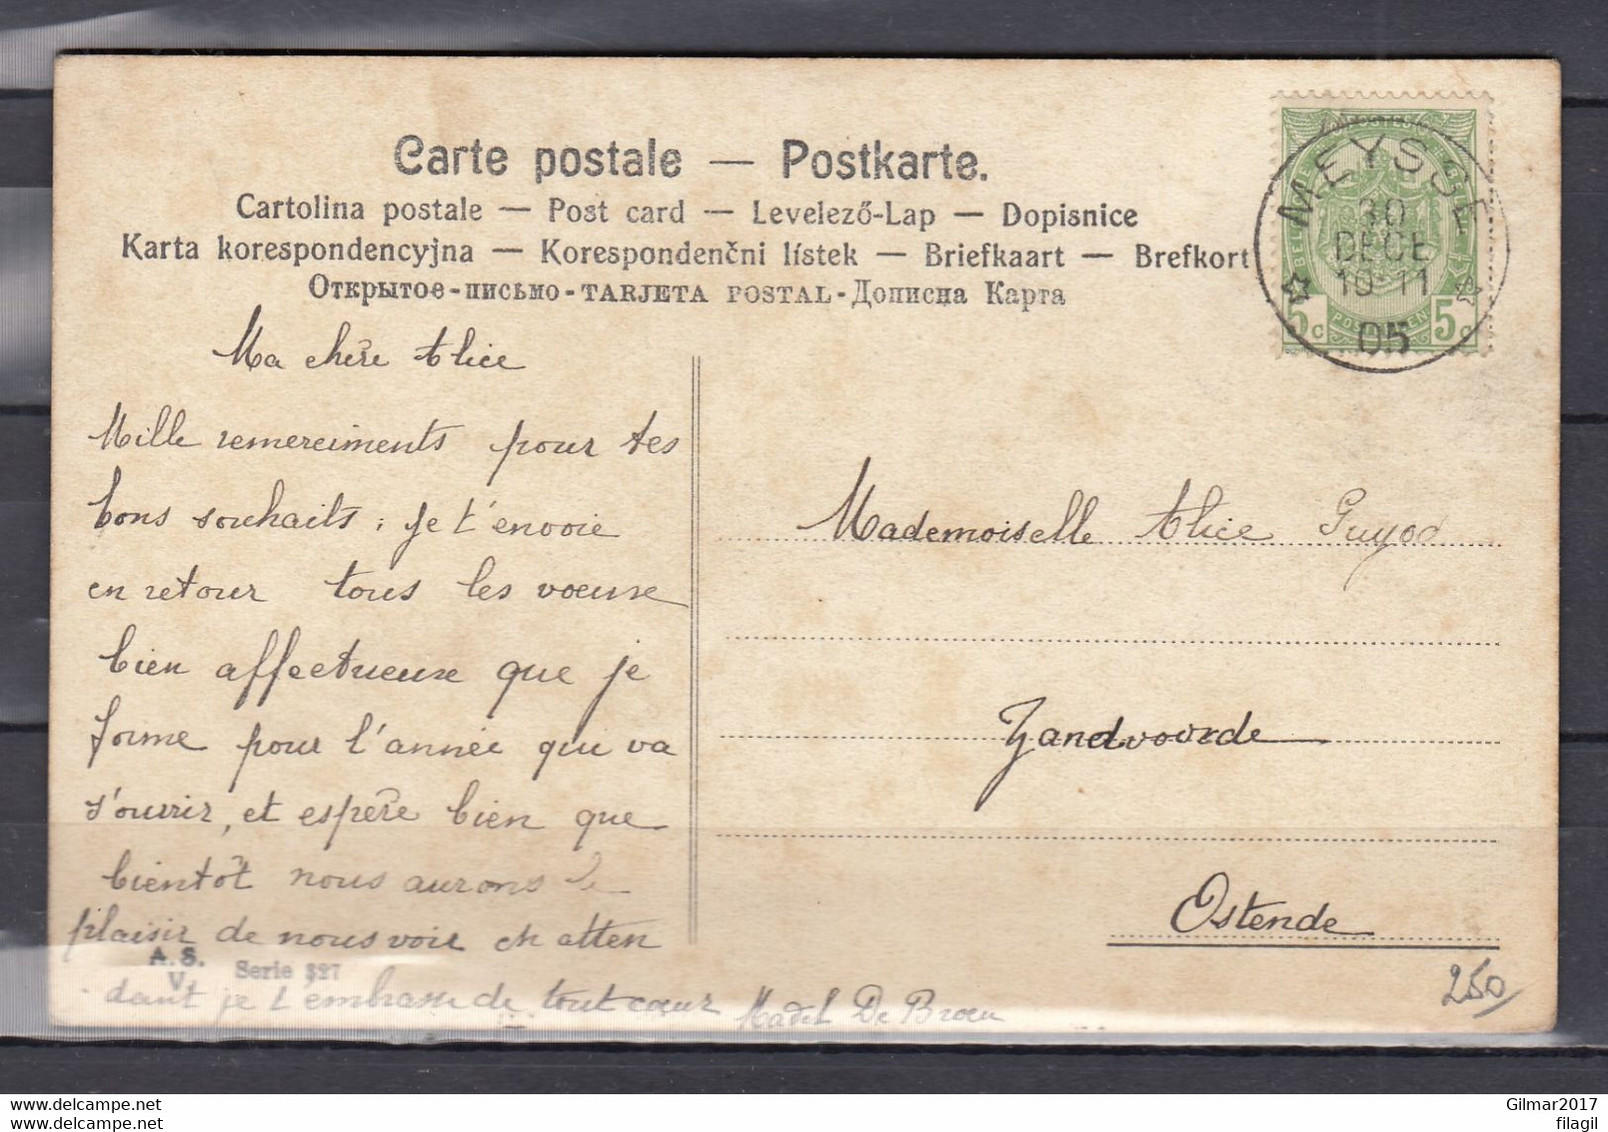 Carte postale — Postkarte.
Cartolina postale — Post card — Levelező-Lap — Dopisnice
Karta korespondencyjna — Korespondenčni lístek — Briefkaart — Brefkort
Открытое-письмо-TARJETA POSTAL-Дописна Карта
MEYSSE
30
DECE
10-11
05
5c 5c
Ma chère Alice
Mille remerciments pour tes
bons souhaits; je t'envoie
en retour tous les voeux
bien affectueux que je
forme pour l'année qui va
s'ouvrir, et espère bien que
bientôt nous aurons le
plaisir de nous voir en atten
dant je t'embrasse de tout coeur
A. S.
V.
Serie 327
De Broeu
Mademoiselle Alice
Zandvoorde
Ostende
250
delcampe.net
delcampe.net
Gilmar2017
filagil